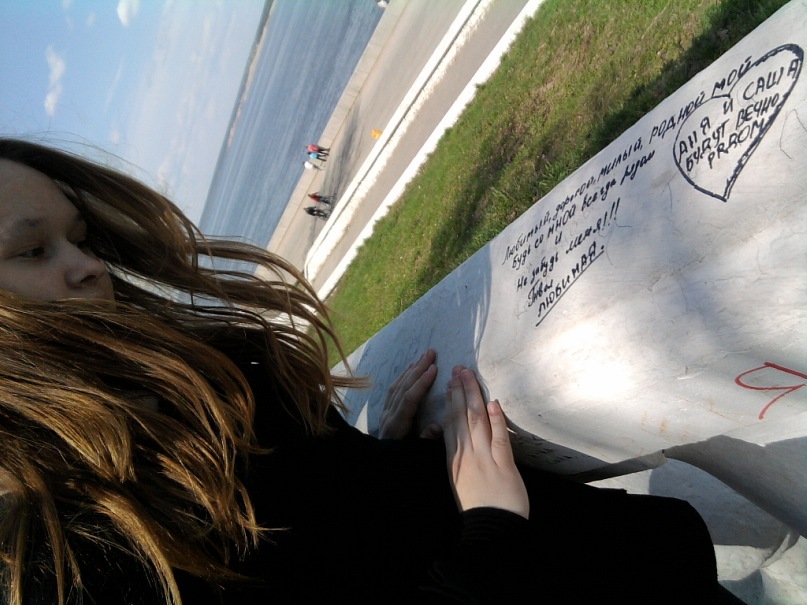 Любимый, дорогой, милый, родной мой
будь со мной всегда рядом
и
Не забудь меня!!!
Твоя
ЛЮБИМАЯ.
АНЯ И САША
БУДУТ ВЕЧНО
РЯДОМ